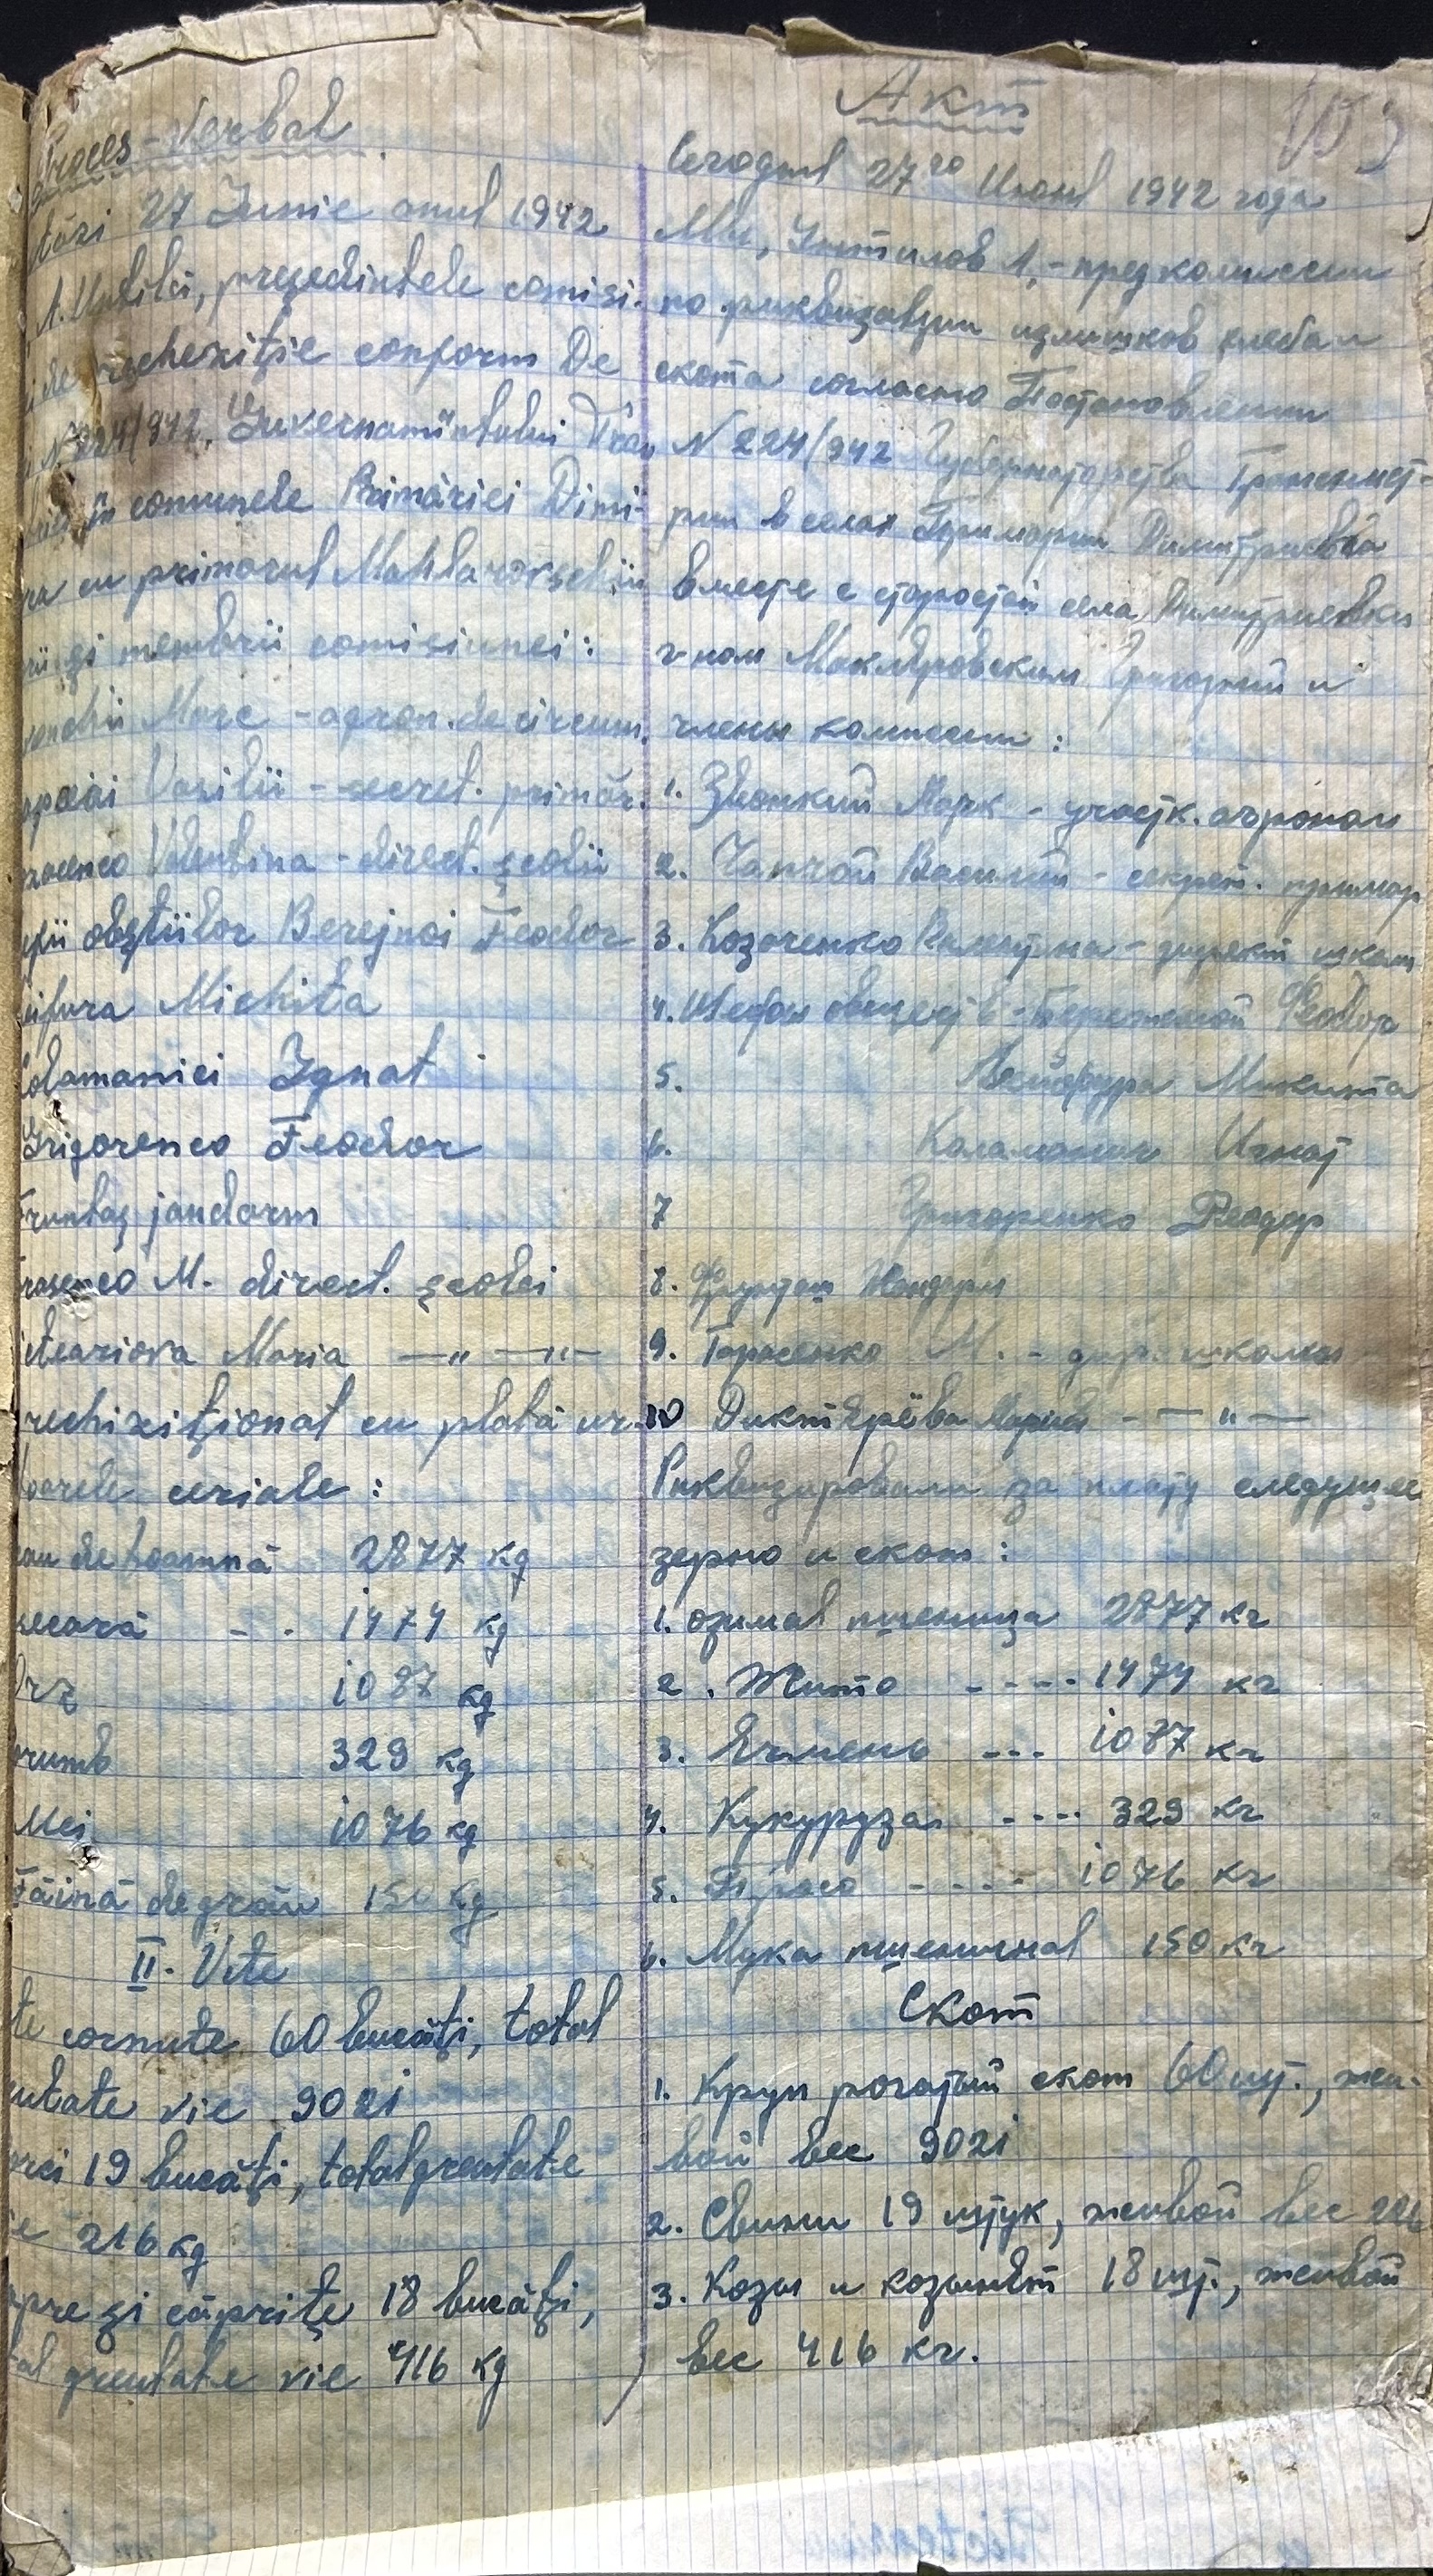 Proces-Verbal
Akт
103
tăzi 27 Iunie anul 1942
A. Untilă, președintele comisi-
de rechiziție conform De
N 224/942, Guvernamîntului Tran
în comunele Primăriei Dimi-
cu primarul
și membrii comisiunei:
Marc - agron. de circum.
Vasilii - secret. primăr.
Valentina - direct. școlii
obștiilor Berejnoi Feodor
Michita
Colamanici Ignat
Grigorenco Feodor
Fruntaș jandarm
M. direct. școlei
Maria —"— —"—
rechiziționat cu plată ur-
ceriale:
de toamnă 2877 kg
secară - - 1474 kg
Orz 1087 kg
329 kg
Mei 1076 kg
Făină de grâu 150 kg
II. Vite
te cornute 60 bucăți, total
utate vie 9021
19 bucăți, total greutate
216 kg
pre și căprițe 18 bucăți,
tal greutate vie 416 kg
Сегодня 27го Июня 1942 года
Мы, А. - пред комиссии
по риквизации излишков хлеба и
скота согласно Постановлении
N 224/942 Губернаторства Транснист-
рии в селах Примарии Димитриевка
вместе с старостой села Димитриевки
г-ном Макляровским Григорий и
члены комиссии:
1. Звонкий Марк - участк. агроном
2. Чапчай Василий - секрет. примар
3. Козаченко Валентина - директ школ
4. Шефы обществ - Бережной Феодор
5. Микита
6. Каламанич Игнат
7 Григоренко Феодор
8. Фрунташ Жандарм
9. Тарасенко М. - дир. школы
10 Мария - — " —
Риквизировали за плату следущее
зерно и скот:
1. озимая пшеница 2877 кг
2. Жито - - - - 1474 кг
3. Ячмень - - - 1087 кг
4. Кукуруза - - - - 329 кг
5. Просо - - - - 1076 кг
6. Мука пшеничная 150 кг
Скот
1. Круп рогатый скот 60 шт., жи-
вой вес 9021
2. Свини 19 штук, живой вес 216
3. Козы и козынят 18 шт., живой
вес 416 кг.